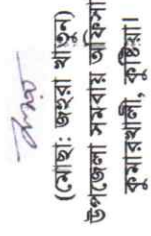 (মোছা: জহুরা খাতুন)
উপজেলা সমবায় অফিসা
কুমারখালী, কুষ্টিয়া।